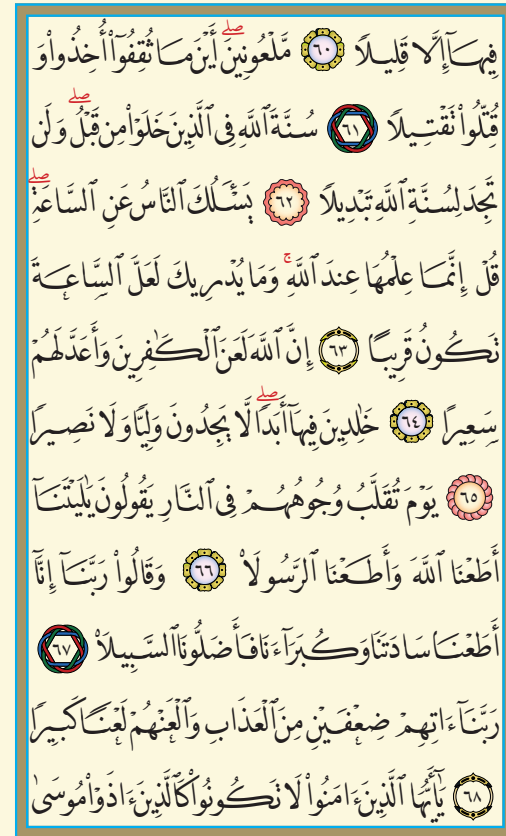 فِيهَآ إِلَّا قَلِيلًا ٦٠ مَّلْعُونِينَۖ أَيْنَمَا ثُقِفُوٓا۟ أُخِذُوا۟ وَ
قُتِّلُوا۟ تَقْتِيلًا ٦١ سُنَّةَ ٱللَّهِ فِى ٱلَّذِينَ خَلَوْا۟ مِن قَبْلُۖ وَلَن
تَجِدَ لِسُنَّةِ ٱللَّهِ تَبْدِيلًا ٦٢ يَسْـَٔلُكَ ٱلنَّاسُ عَنِ ٱلسَّاعَةِۖ
قُلْ إِنَّمَا عِلْمُهَا عِندَ ٱللَّهِۚ وَمَا يُدْرِيكَ لَعَلَّ ٱلسَّاعَةَ
تَكُونُ قَرِيبًا ٦٣ إِنَّ ٱللَّهَ لَعَنَ ٱلْكَٰفِرِينَ وَأَعَدَّ لَهُمْ
سَعِيرًا ٦٤ خَٰلِدِينَ فِيهَآ أَبَدًاۖ لَّا يَجِدُونَ وَلِيًّا وَلَا نَصِيرًا
٦٥ يَوْمَ تُقَلَّبُ وُجُوهُهُمْ فِى ٱلنَّارِ يَقُولُونَ يَٰلَيْتَنَآ
أَطَعْنَا ٱللَّهَ وَأَطَعْنَا ٱلرَّسُولَا۠ ٦٦ وَقَالُوا۟ رَبَّنَآ إِنَّآ
أَطَعْنَا سَادَتَنَا وَكُبَرَآءَنَا فَأَضَلُّونَا ٱلسَّبِيلَا۠ ٦٧
رَبَّنَآ ءَاتِهِمْ ضِعْفَيْنِ مِنَ ٱلْعَذَابِ وَٱلْعَنْهُمْ لَعْنًا كَبِيرًا
٦٨ يَٰٓأَيُّهَا ٱلَّذِينَ ءَامَنُوا۟ لَا تَكُونُوا۟ كَٱلَّذِينَ ءَاذَوْا۟ مُوسَىٰ